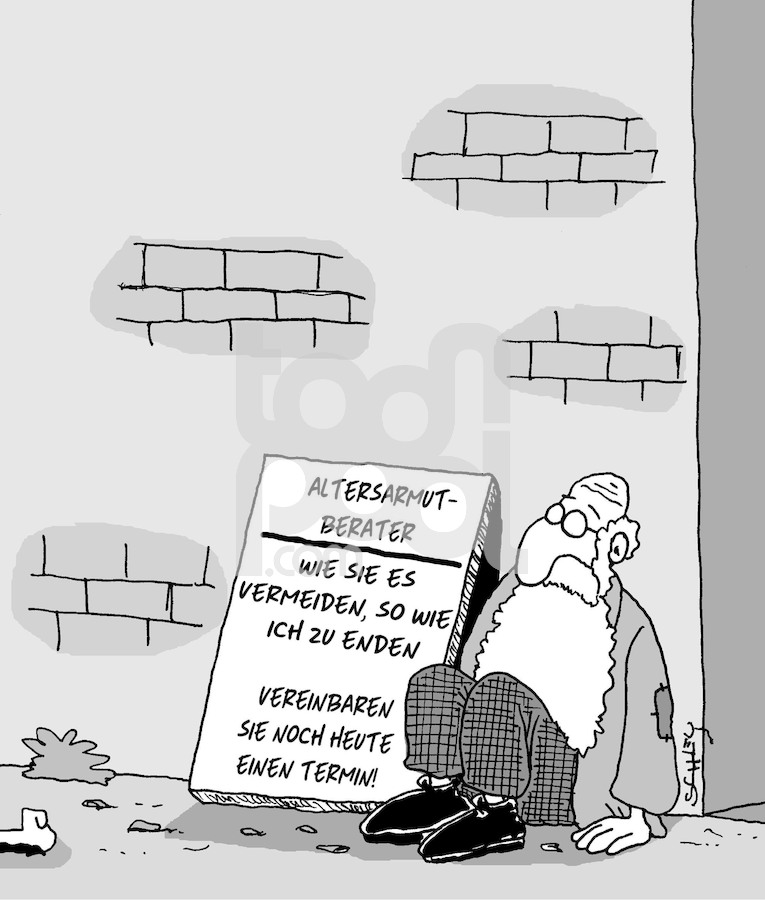 ALTERSARMUT-
BERATER
WIE SIE ES
VERMEIDEN, SO WIE
ICH ZU ENDEN
VEREINBAREN
SIE NOCH HEUTE
EINEN TERMIN!
toon
pool
.com
SCHLEY